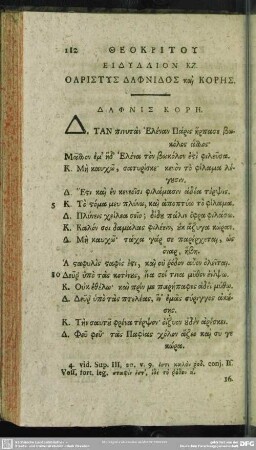 112 ΘΕΟΚΡΙΤΟΥ
ΕΙΔΥΛΛΙΟΝ ΚΖ.
ΟΑΡΙΣΤΥΣ ΔΑΦΝΙΔΟΣ καὶ ΚΟΡΗΣ.
ΔΑΦΝΙΣ ΚΟΡΗ.
Δ. ΤΑΝ πινυτὰν Ἑλέναν Πάρις ἥρπασε βω-
κόλος ἄλλος·
Μᾶλλον ἐμ' ἡδ' Ἑλένα τὸν βωκόλον ἐστὶ φιλεῦσα.
Κ. Μὴ καυχῶ, σατυρίσκε· κενὸν τὸ φίλαμα λέ-
γουσιν.
Δ. Ἔστι καὶ ἐν κενεοῖσι φιλάμασιν ἁδέα τέρψις.
5 Κ. Τὸ στόμα μευ πλύνω, καὶ ἀποπτύω τὸ φίλαμα.
Δ. Πλύνεις χείλεα σεῖο; δίδε πάλιν ὄφρα φιλάσω.
Κ. Καλόν σοι δαμάλας φιλέειν, οὐκ ἄζυγα κώραν.
Δ. Μὴ καυχῶ· τάχα γάρ σε παρέρχεται, ὡς
ὄναρ, ἥβη.
Ἁ σταφυλὶς σταφίς ἐστι, καὶ οὐ ῥόδον αὖον ὀλεῖται.
10 Δεῦρ' ὑπὸ τὰς κοτίνους, ἵνα σοί τινα μῦθον ἐνίψω.
Κ. Οὐκ ἐθέλω· καὶ πρίν με παρήπαφες ἁδέι μύθῳ.
Δ. Δεῦρ' ὑπὸ τὰς πτελέας, ἵν' ἐμᾶς σύριγγος ἀκού-
σῃς.
Κ. Τὴν σαυτοῦ φρένα τέρψον· ὀϊζύον οὐδὲν ἀρέσκει.
Δ. Φεῦ φεῦ· τᾶς Παφίας χόλον ἅζεο καὶ σύ γε
κώρα.
4. vid. Sup. III, 20. v. 9. ἐστι καλὸν ῥόδ. conj. II.
Voss. fort. leg. σταφίς ἐστ',
16.